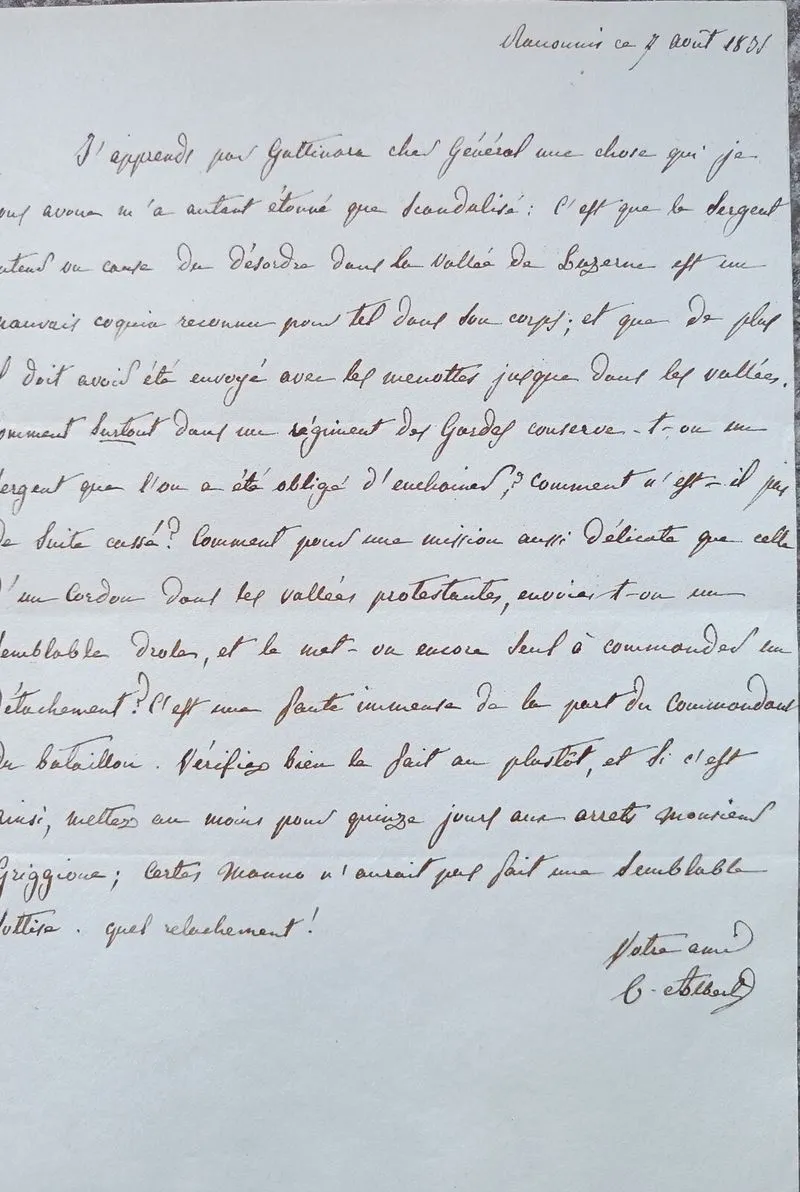 Raconnis ce 7 août 18
J'apprends par Gattinara cher Général une chose qui je
ous avoue m'a autant étonné que Scandalisé: C'est que le Sergent
ntend ou cause du désordre dans la vallée de Luzerne est un
mauvais coquin reconnu pour tel dans Son corps; et que de plus
l doit avoir été envoyé avec les menottes jusque dans les vallées.
omment Surtout dans un régiment des Gardes conserve-t-on un
ergent que l'on a été obligé d'enchainer,? Comment n'est-il pas
de Suite cassé? Comment pour une mission aussi délicate que celle
d'un Cordon dans les vallées protestantes, envoie-t-on un
emblable drole, et le met-on encore Seul à commander un
détachement? C'est une faute immense de la part du Commandant
du bataillon. Vérifiez bien le fait au plustôt, et Si c'est
ainsi, mettez au moins pour quinze jours aux arrets Monsieur
Griggione; Certes Manno n'aurait pas fait une Semblable
Sottise. quel relachement!
Votre ami
C. Albert